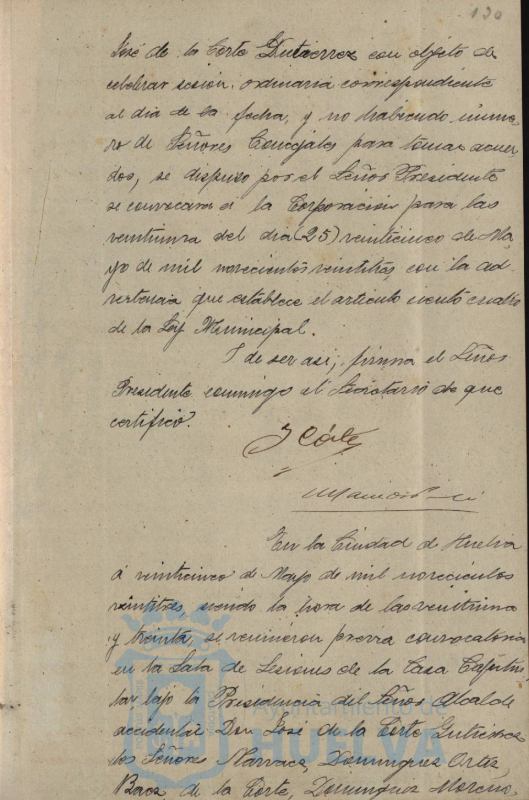 130
José de la Corte Gutierrez con objeto de
celebrar sesión ordinaria correspondiente
al dia de la fecha, y no habiendo núme-
ro de Señores Concejales para tomar acuer-
dos, se dispuso por el Señor Presidente
se convocara a la Corporación para las
veintiuna del dia (25) veinticinco de Ma-
yo de mil novecientos veintitrés, con la ad-
vertencia que establece el articulo ciento cuatro
de la Ley Municipal.
Y de ser asi, firma el Señor
Presidente conmigo el Secretario de que
certifico.
J Córte
En la Ciudad de Huelva
á veinticinco de Mayo de mil novecientos
veintitres, siendo la hora de las veintiuna
y treinta, se reunieron previa convocatoria
en la Sala de Sesiones de la Casa Capitu-
lar bajo la Presidencia del Señor Alcalde
accidental Don José de la Corte Gutierrez
los Señores Narvaez, Dominguez Ortiz,
Baez, de la Corte, Dominguez Moreno,
Ayuntamiento de
HUELVA